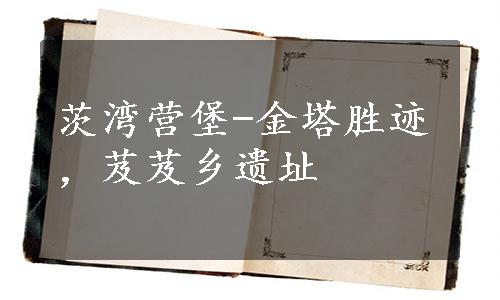 茨湾营堡-金塔胜迹
，芨芨乡遗址